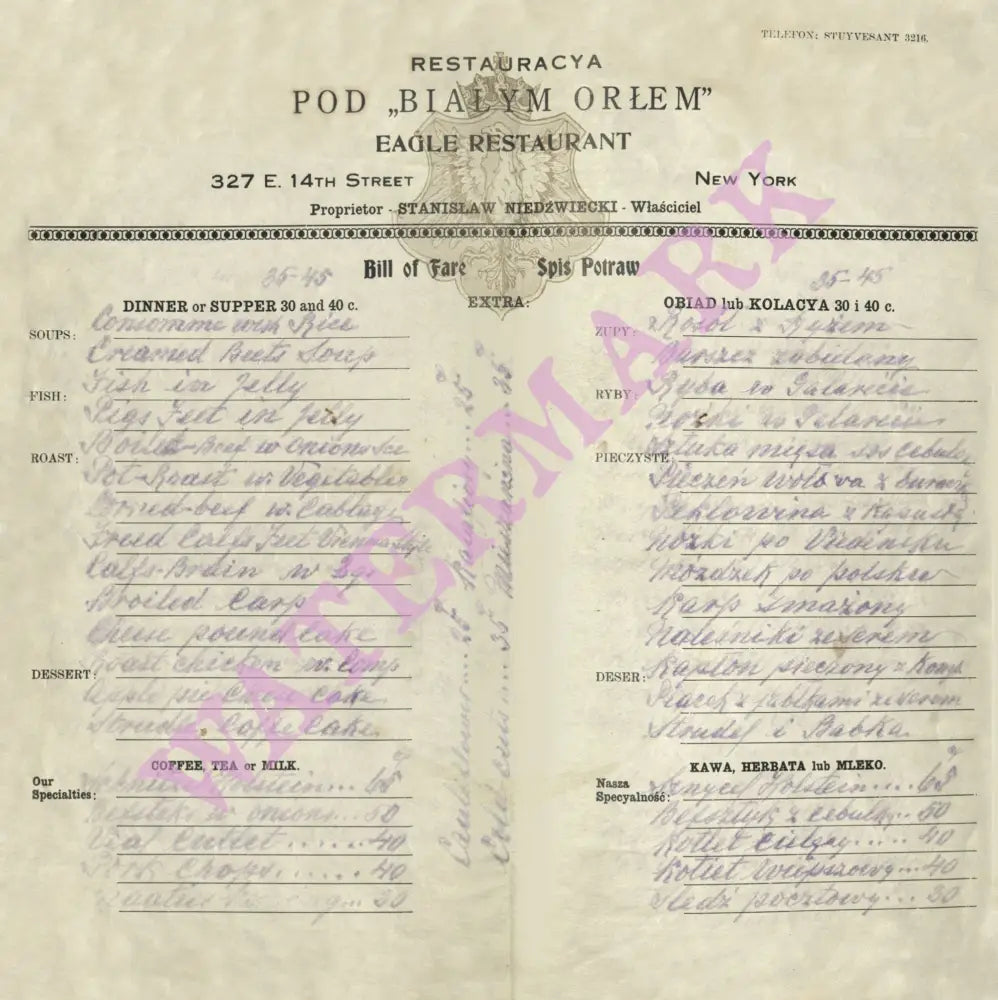 TELEFON: STUYVESANT 3216.
RESTAURACYA
POD „BIAŁYM ORŁEM”
EAGLE RESTAURANT
327 E. 14TH STREET NEW YORK
Proprietor - STANISŁAW NIEDŹWIECKI - Właściciel
Bill of Fare Spis Potraw
35-45
DINNER or SUPPER 30 and 40 c.
SOUPS: Consomme with Rice
Creamed Beets Soup
FISH: Fish in Jelly
Pigs Feet in Jelly
ROAST: Boiled-Beef w Onions
Pot-Roast w. Vegetables
w. Cabbage
Fried Calfs Feet
Calfs-Brain w
Broiled Carp
Cheese pound cake
DESSERT: Roast chicken w. Comp
Apple pie Cheese Cake
Strudel Coffee Cake
COFFEE, TEA or MILK.
Our Specialties: Holstein... 65
w onions... 50
Veal Cutlet ...... 40
Pork Chops ...... 40
30
EXTRA:
Cauliflower... 25
35
25
WATERMARK
35-45
OBIAD lub KOLACYA 30 i 40 c.
ZUPY: Rosół z Ryżem
Barszcz zabielany
RYBY: Ryba w Galarecie
Nóżki w Galarecie
PIECZYSTE: Sztuka mięsa sos cebula
Pieczeń wołowa z
Peklowina z Kapustą
Nóżki po
Móżdżek po polsku
Karp smażony
Nalesniki ze serem
DESER: Kapłon pieczony z Komp.
Placek z jabłkami ze serem
Strudel i Babka
KAWA, HERBATA lub MLEKO.
Nasza Specyalność: Sznycel Holstein... 65
Befsztyk z cebulą... 50
Kotlet Cielęcy..... 40
Kotlet wieprzowy... 40
Śledź pocztowy... 30